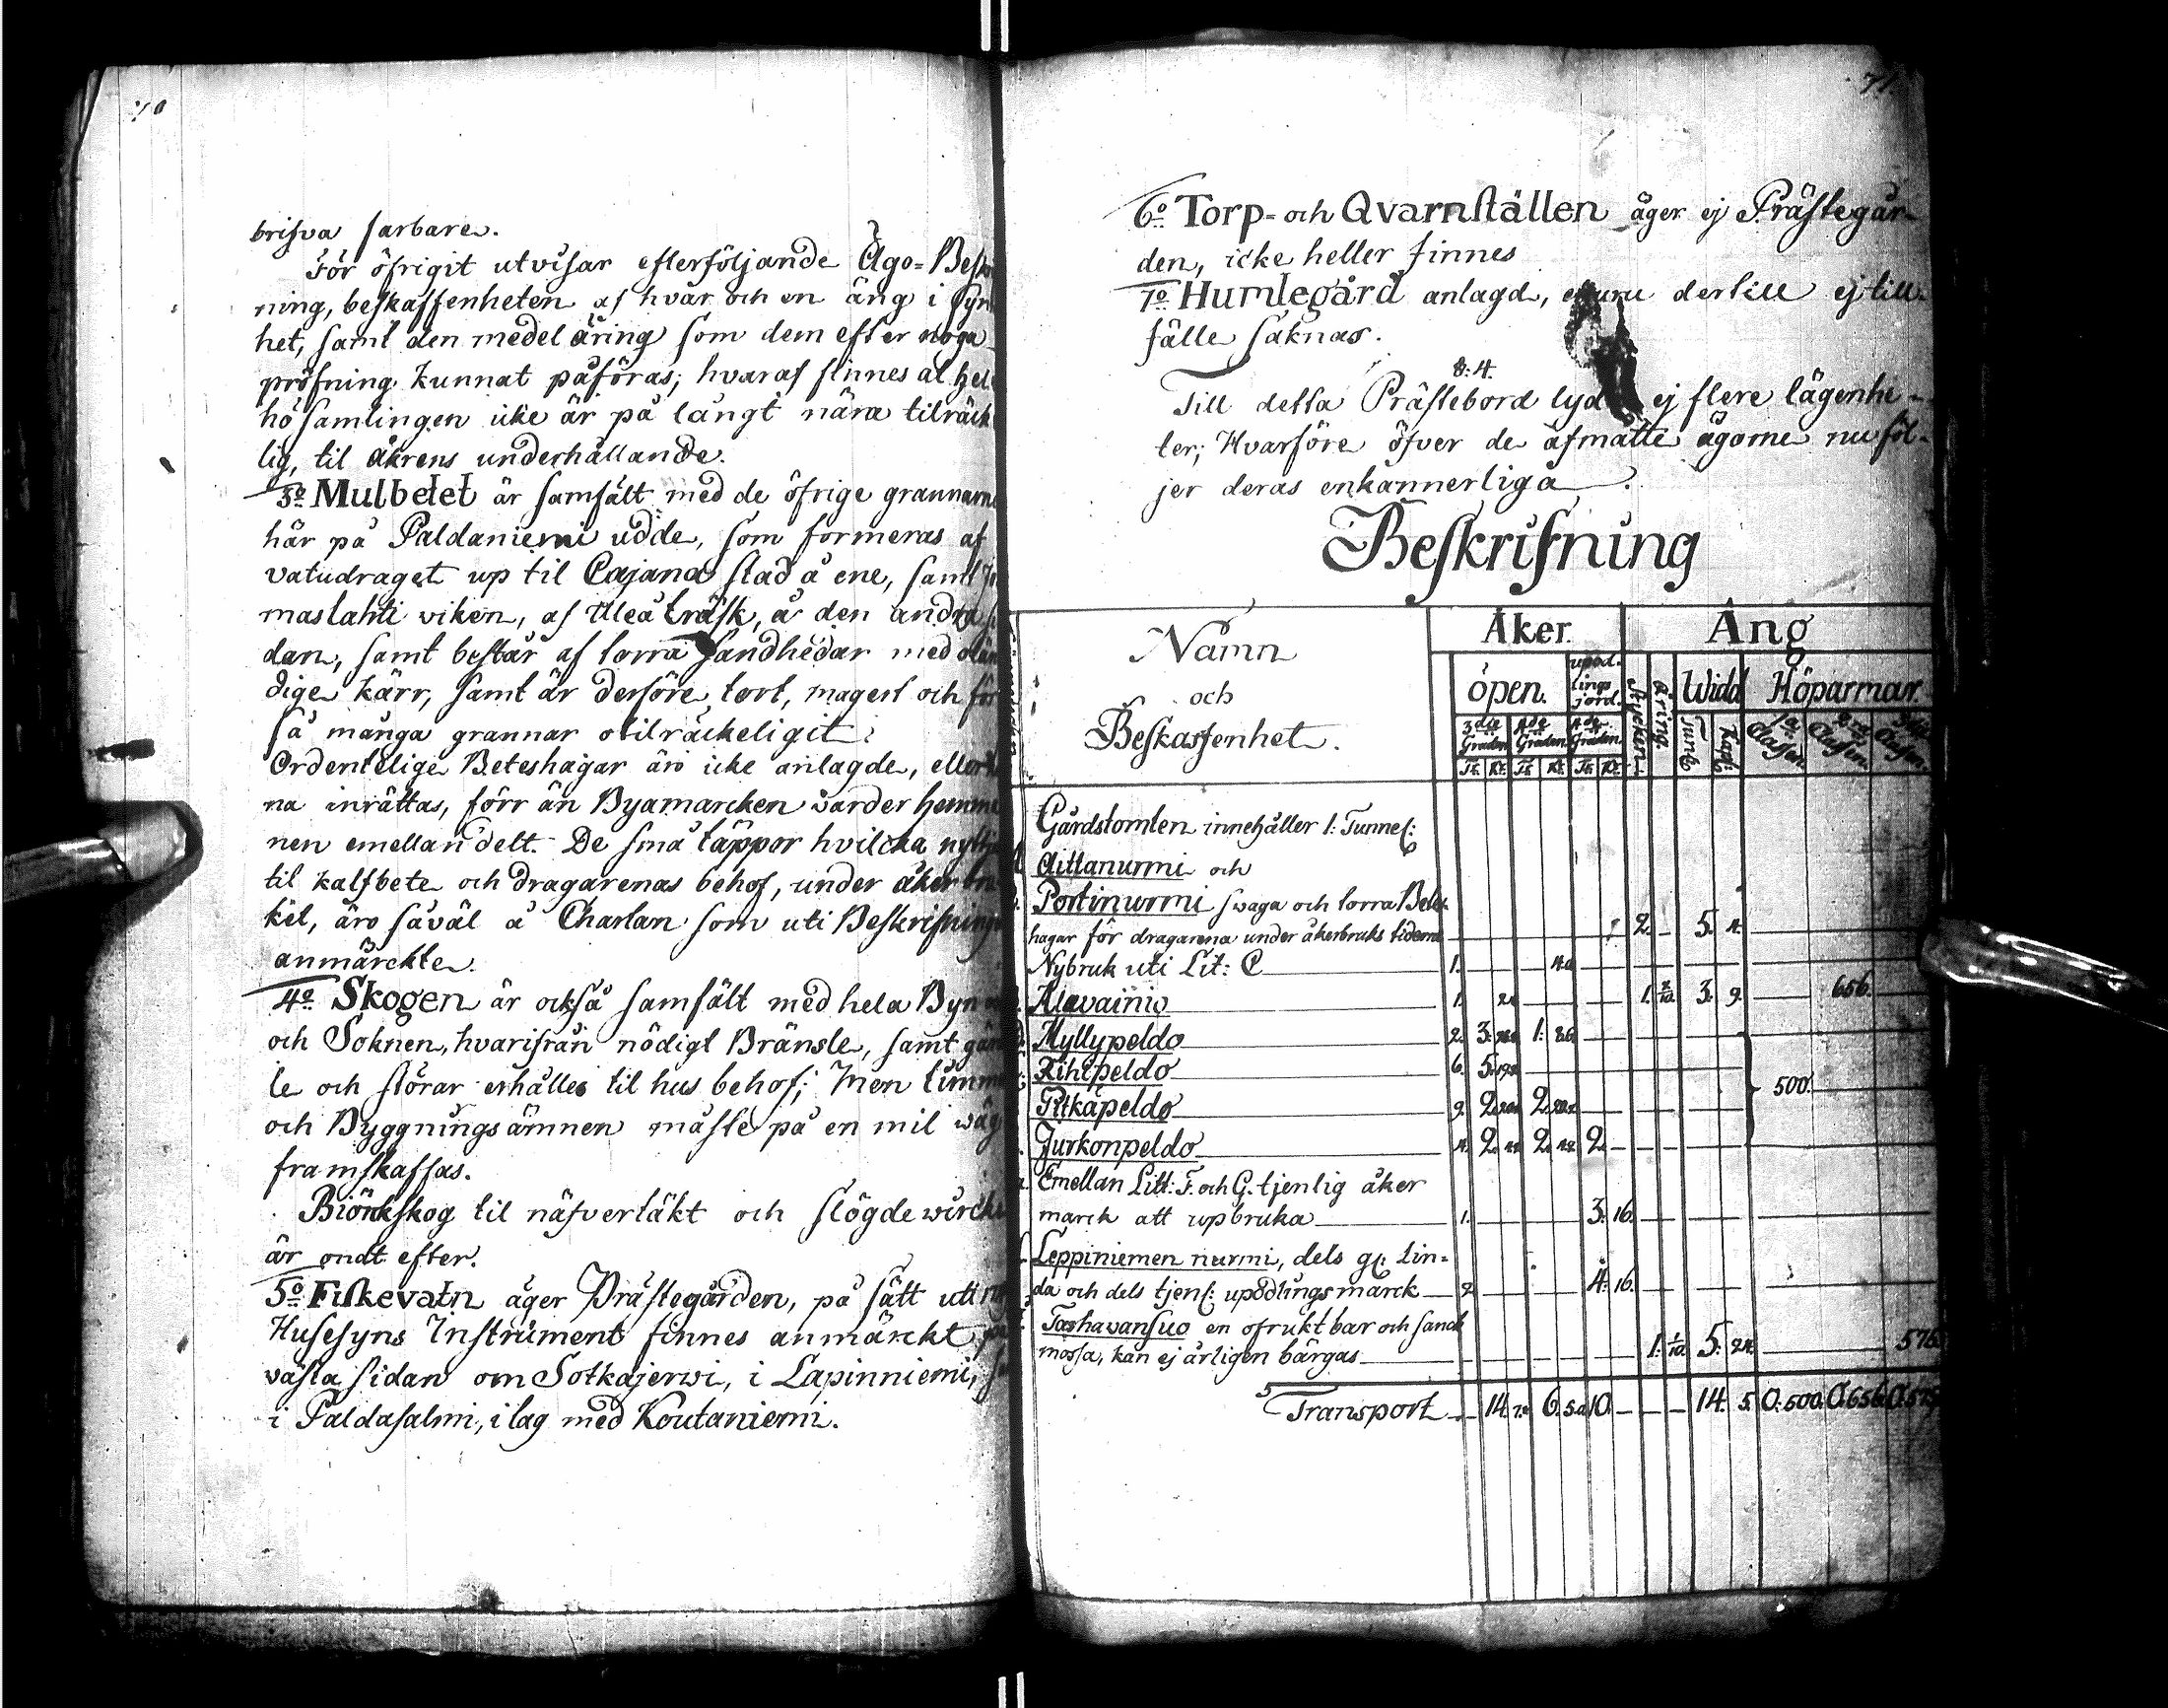 70
brisva farbare.
För öfrigit utvisar efterföljande Ägo-Beskr
ning, beskaffenheten af hvar och en äng i syn
het, samt den medel äring som dem efter noga
pröfning kunnat påföras; hvaraf finnes at hel
hö samlingen icke är på långt nära tilräck
lig, til åkrens underhållande.
3o Mulbetet är samfält med de öfrige grannarne
här på Paldaniemi udde, som formeras af
vatudraget up til Cajana stad å ene, samt
maslahti viken, af Uleå träsk, å den andra
dan, samt består af torra Sandhedar med
dige kärr, samt är derföre tort, magert och för
så många grannar otilräckeligit.
Ordentelige Beteshagar äro icke anlagde, eller
na inrättas, förr än Byamarcken varder hemma
nen emellan delt. De små täppor hvilcka nyttj
til kalfbete och dragarenas behof, under åker
kel, äro såväl å Chartan som uti Beskrifning
anmärckte.
4o Skogen är också samfält med hela Byn
och Soknen, hvarifrån nödigt Bränsle, samt
le och störar erhålles til hus behof; Men timm
och Byggningsämnen måste på en mil väg
framskaffas.
Biörkskog til näfvertäkt och slögdewircke
är ondt efter.
5o Fiskevatn äger Prästegården, på sätt uti
Husesyns Instrument finnes anmärckt, på
västa sidan om Sotkajerwi, i Lapinniemi,
i Paldasalmi, i lag med Koutaniemi.
71.
6o Torp- och Qvarnställen äger ej Prästegår-
den, icke heller finnes
7o Humlegård anlagd, ehuru dertill ej till-
fälle saknas.
Till detta Prästebord lyd ej flere lägenhe-
ter; Hvarföre öfver de afmätte ägorne nu föl-
jer deras enkannerliga
Beskrifning
Namn och Beskaffenhet.
Åker. Äng
öpen. updlings jord. Stycken. Äring. Widd Höparmar.
3die Graden 4de Graden 4de Graden. Tunl Kapl: 1a Classen. 2dra Classen. 3die Classen.
Tl. Kl. Tl. Kl. Tl. Kl.
Gårdstomten innehåller 1: Tunnel:
Aittanurmi och
Portinurmi svaga och torra Betes-
hagar för dragarena under åkerbruks tiderna 2. 5. 4.
Nybruk uti Lit: C 1.
Alavainio 1. 1. 3. 9. 656.
Myllypeldo 2. 3. 1:
Rihipeldo 6. 5.
Pitkäpeldo 9. 2. 2. 500.
Jurkonpeldo 4. 2. 2. 2.
Emellan Litt: F. och G. tjenlig åker
marck att upbruka 1. 3. 16.
Leppiniemen nurmi, dels gl: lin-
da och dels tjenl: upodlingsmarck 2 4. 16.
Tashavansuo en ofruktbar och sanck
mossa, kan ej årligen bärgas 1: 1/10. 5. 24. 576.
Transport 14. 6. 10. 14. 5 0:500. 0:656.